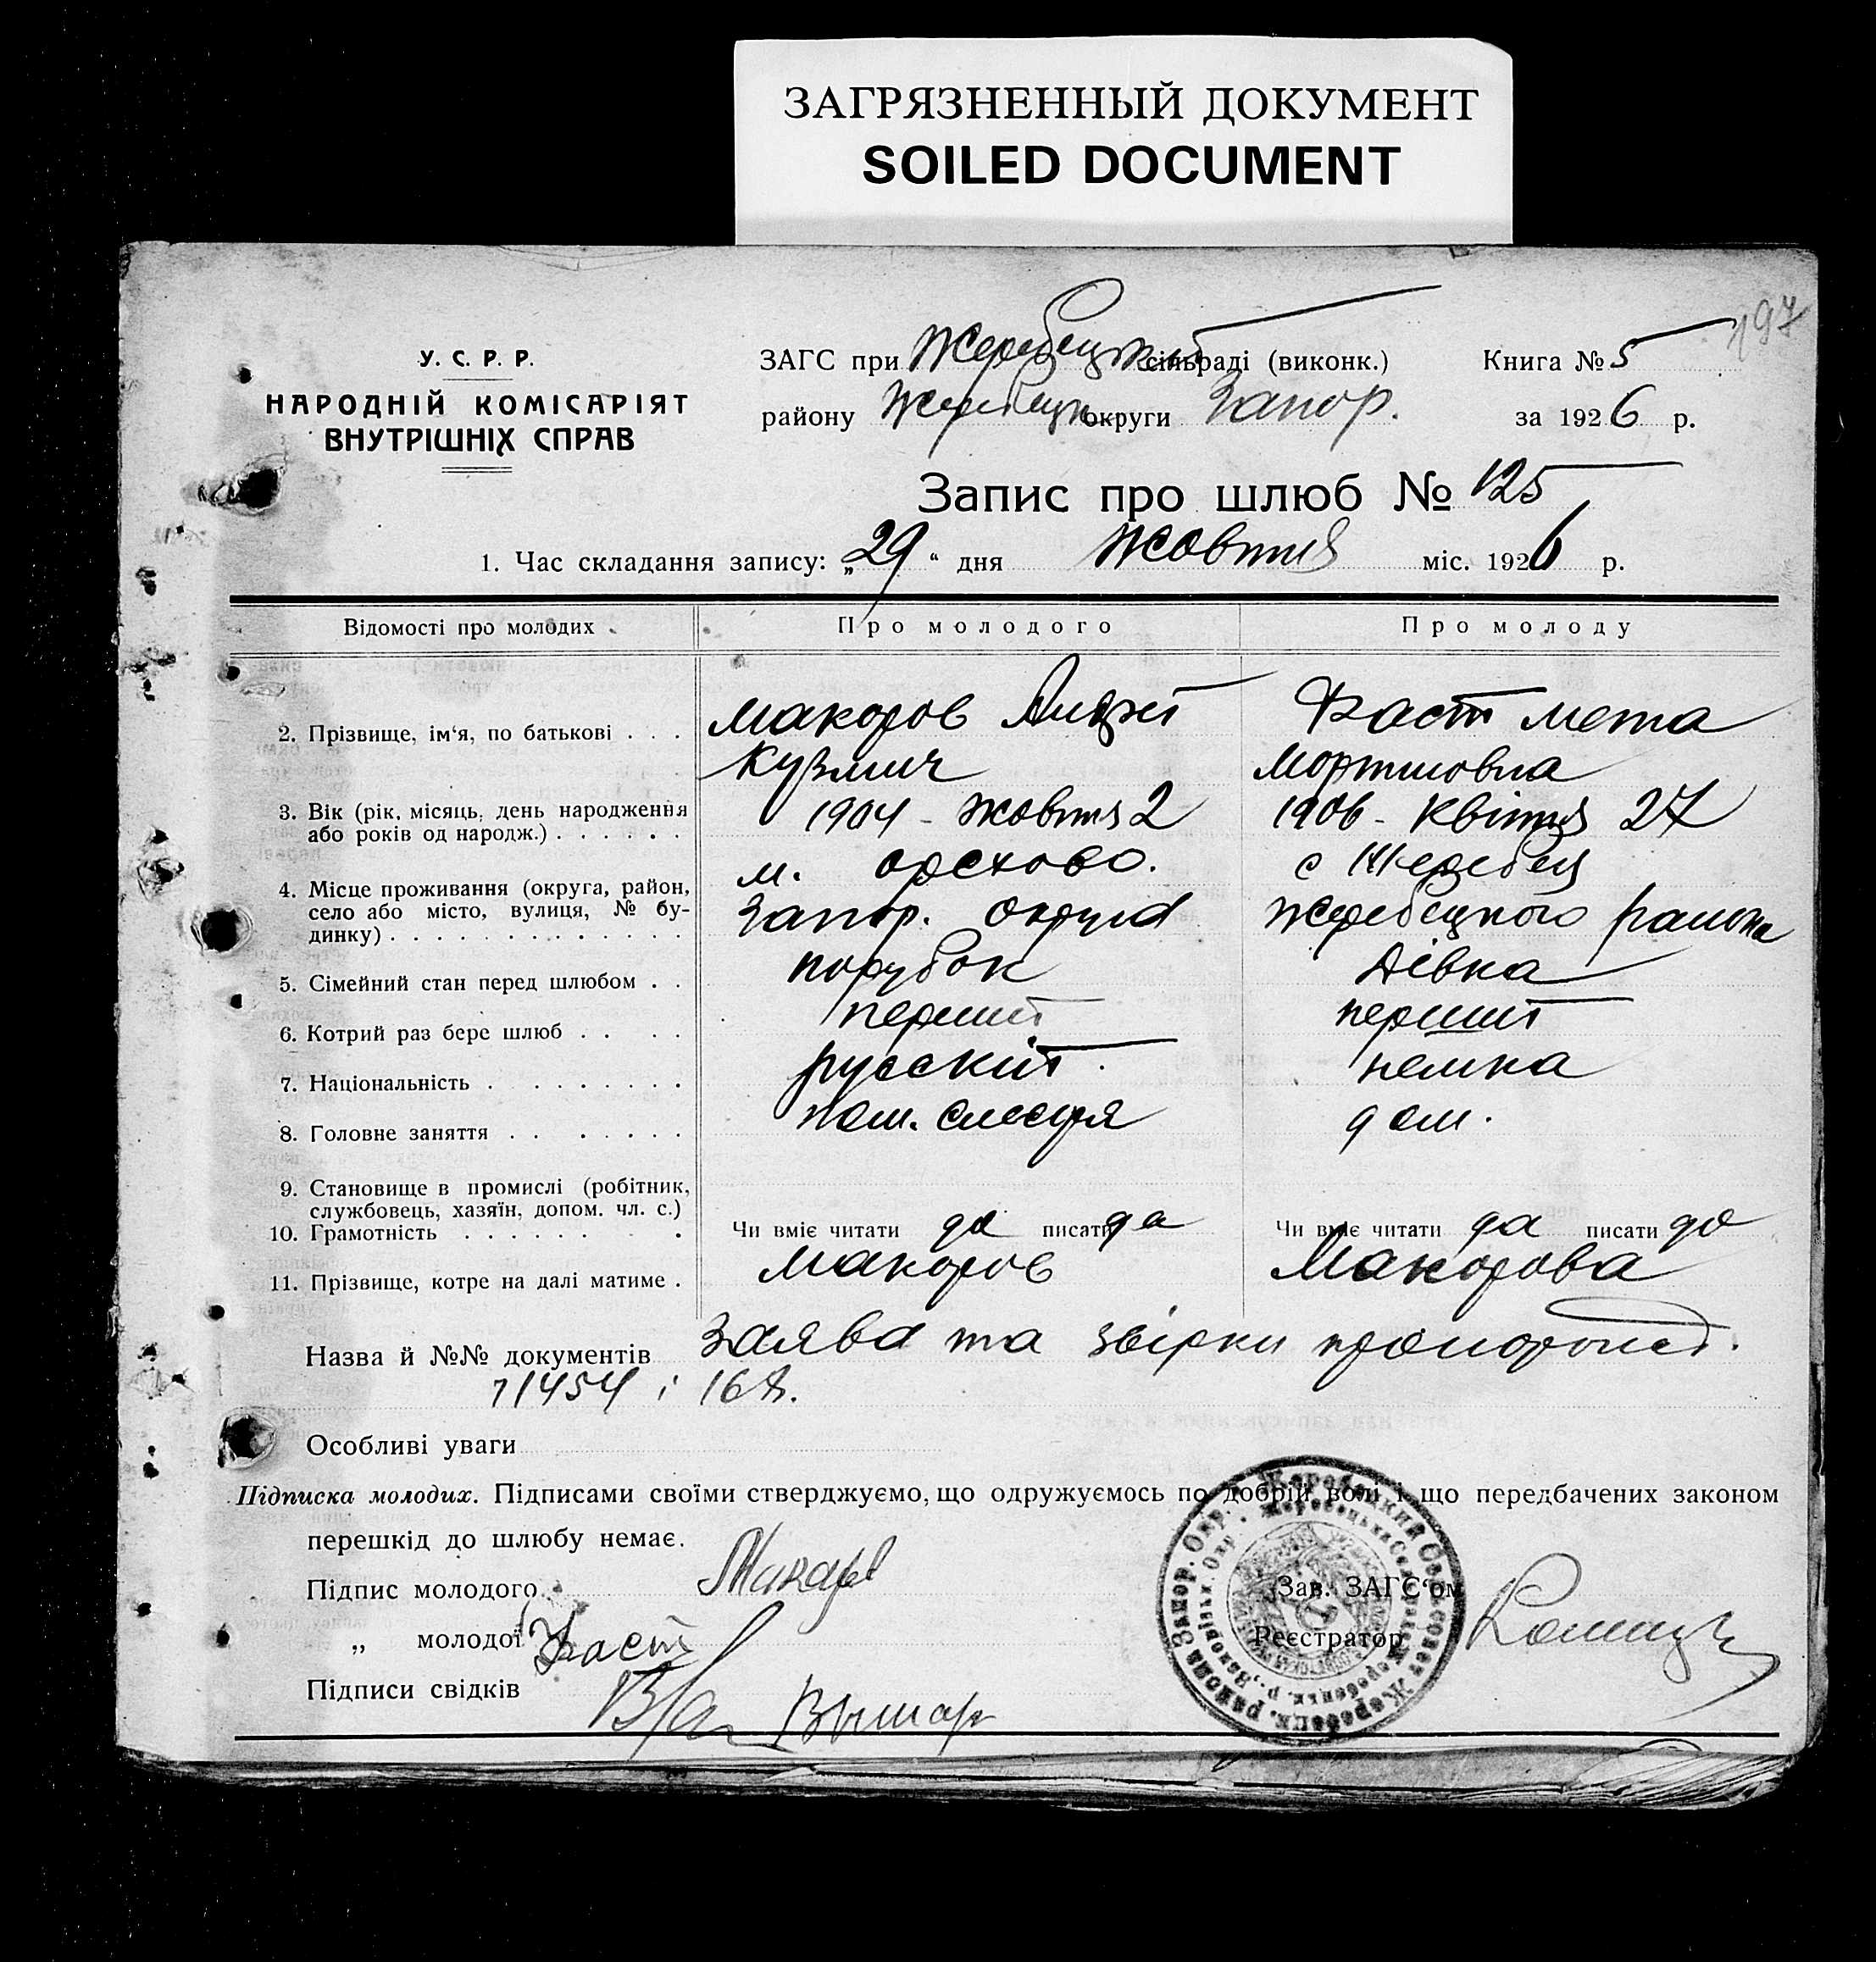 ЗАГРЯЗНЕННЫЙ ДОКУМЕНТ
SOILED DOCUMENT
197
У. С. Р. Р.
НАРОДНІЙ КОМІСАРІЯТ
ВНУТРІШНІХ СПРАВ
ЗАГС при Жеребецькій сільраді (виконк.) Книга № 5
району Жеребецьк. округи Запор. за 1926 р.
Запис про шлюб № 125
1. Час складання запису: „29“ дня жовтня міс. 1926 р.
Відомості про молодих Про молодого Про молоду
2. Прізвище, ім‘я, по батькові . . . Макаров Андрей Фаст Мета
Кузмич Мартиновна
3. Вік (рік, місяць, день народження 1904 - жовтня 2 1906 - Квітня 27
або років од народж.) . . . . . .
4. Місце проживання (округа, район, м. Орехово. с Жеребец
село або місто, вулиця, № бу- Запор. округа Жеребецкого района
динку) . . . . . . . . . . . . .
5. Сімейний стан перед шлюбом . . парубок Дівка
6. Котрий раз бере шлюб . . . . перший перший
7. Національність . . . . . . . . . русский немка
8. Головне заняття . . . . . . . пом. слесаря дом.
9. Становище в промислі (робітник,
службовець, хазяїн, допом. чл. с.)
10. Грамотність . . . . . . . Чи вміє читати да писати да Чи вміє читати да писати да
11. Прізвище, котре на далі матиме . Макаров Макарова
Назва й №№ документів Заява та звірки
71454 і 168.
Особливі уваги
Підписка молодих. Підписами своїми стверджуємо, що одружуємось по добрій волі і що передбачених законом
перешкід до шлюбу немає.
Підпис молодого Макаров
Зав. ЗАГС‘ом
„ молодої Фаст
Реєстратор
Підписи свідків